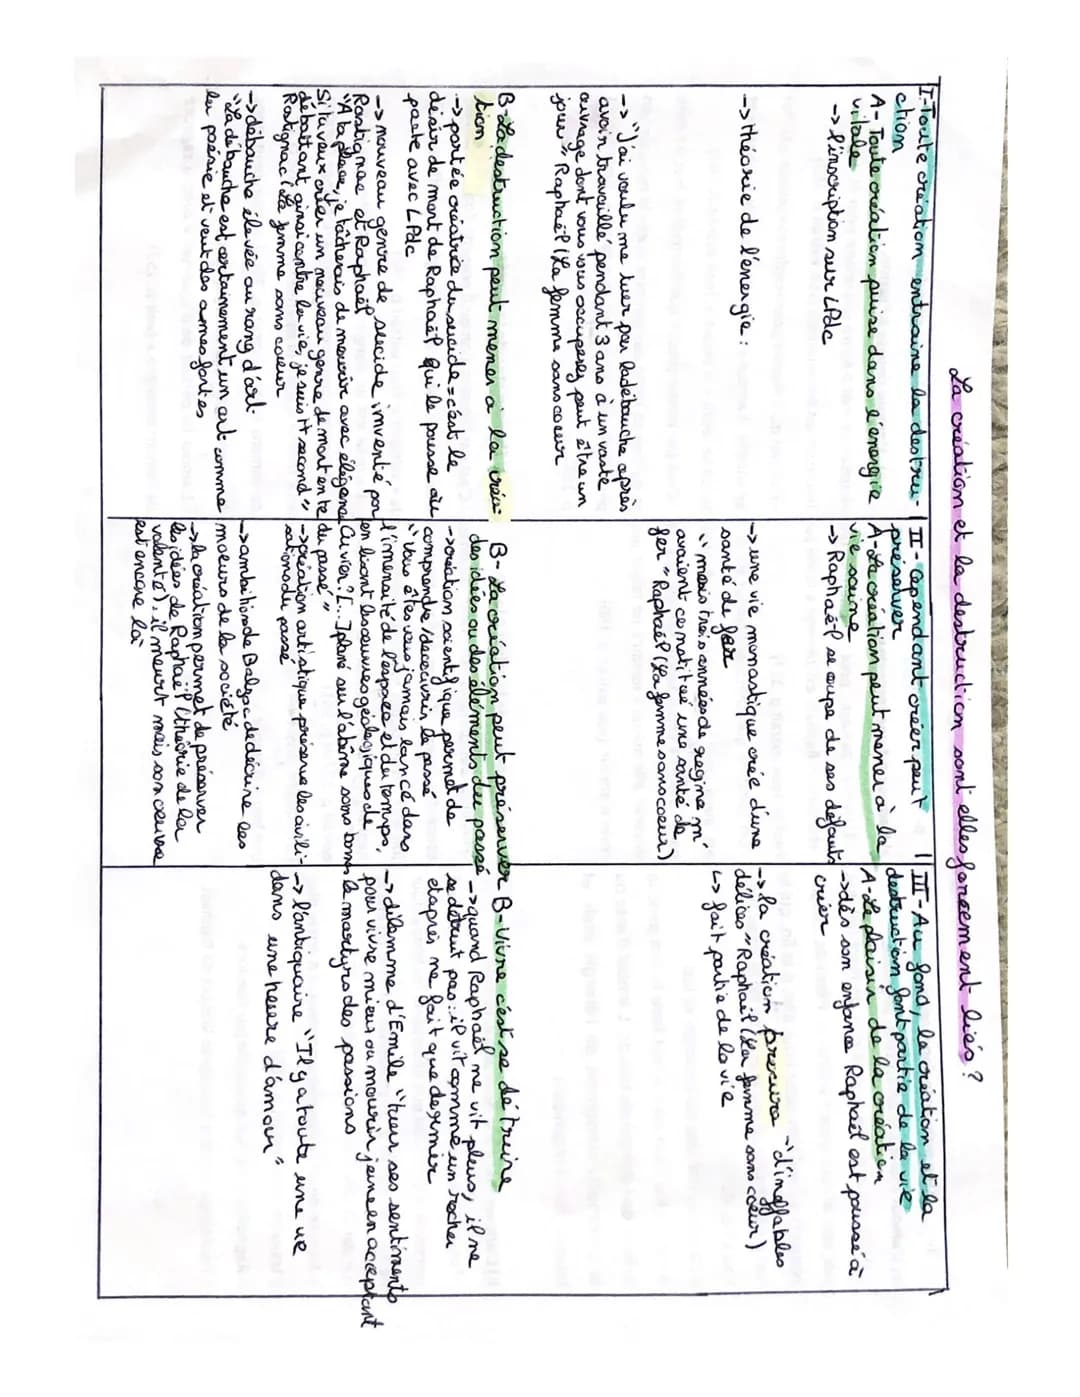 La création et la destruction sont elles forcement liés ?
I-Toute création entraine la destru-
ction
A- Toute création puise dans l'énergie
vitale
-> l'inscription sur LPdc
-> théorie de l'énergie :
-> "J'ai voulu me tuer par la débauche après
avoir travaillé pendant 3 ans à un vaste
ouvrage dont vous vous occuperez peut être un
jour" Raphaël (La femme sans coeur
B-La destruction peut mener à la créa-
tion
-> portée créatrice du suicide = c'est le
désir de mort de Raphaël qui le pousse au
pacte avec LPdc
-> nouveau genre de suicide inventé par
Rastignac et Raphaël
"A ta place, je tâcherais de mourir avec élégance
Si tu veux créer un nouveau genre de mort en te
débattant ainsi contre la vie, je suis tt second"
Rastignac (La femme sans coeur
-> débauche élevée au rang d'art
"La débauche est certainement un art comme
la poésie et veut des armes fortes
II- Cependant créer peut
préserver
A-La création peut mener à la
vie saine
-> Raphaël se cupe de ses défauts
-> une vie monastique crée d'une
santé de fer
"mes trois années de regime m'
avaient constitué une santé de
fer" Raphaël (La femme sans coeur)
B- La création peut préserver
des idées ou des éléments du passé
-> création scientifique permet de
comprendre/decouvrir le passé
"Vous êtes vous jamais lancé dans
l'immensité de l'espace et du temps,
en lisant les oeuvres géologiques de
Cuvier ? [...] plané sur l'abîme sans bornes
du passé"
-> création artistique préserve les civili-
sations du passé
-> ambition de Balzac de décrire les
moeurs de la société
-> la création permet de préserver
les idées de Raphaël (théorie de la
volonté), il meurt mais son oeuvre
est encore là
III- Au fond, la création et la
destruction font partie de la vie
A-Le plaisir de la création
-> dès son enfance Raphaël est poussé à
créer
-> la création procura "d'ineffables
délices" Raphaël (La femme sans coeur)
↳ fait partie de la vie
B-Vivre c'est se détruire
-> quand Raphaël ne vit plus, il ne
se détruit pas : il vit comme un rocher
et après ne fait que dormir
-> dilemme d'Emile "tuer ses sentiments
pour vivre mieux ou mourir jeune en acceptant
le martyrs des passions
-> l'antiquaire "Il y a toute une vie
dans une heure d'amour"